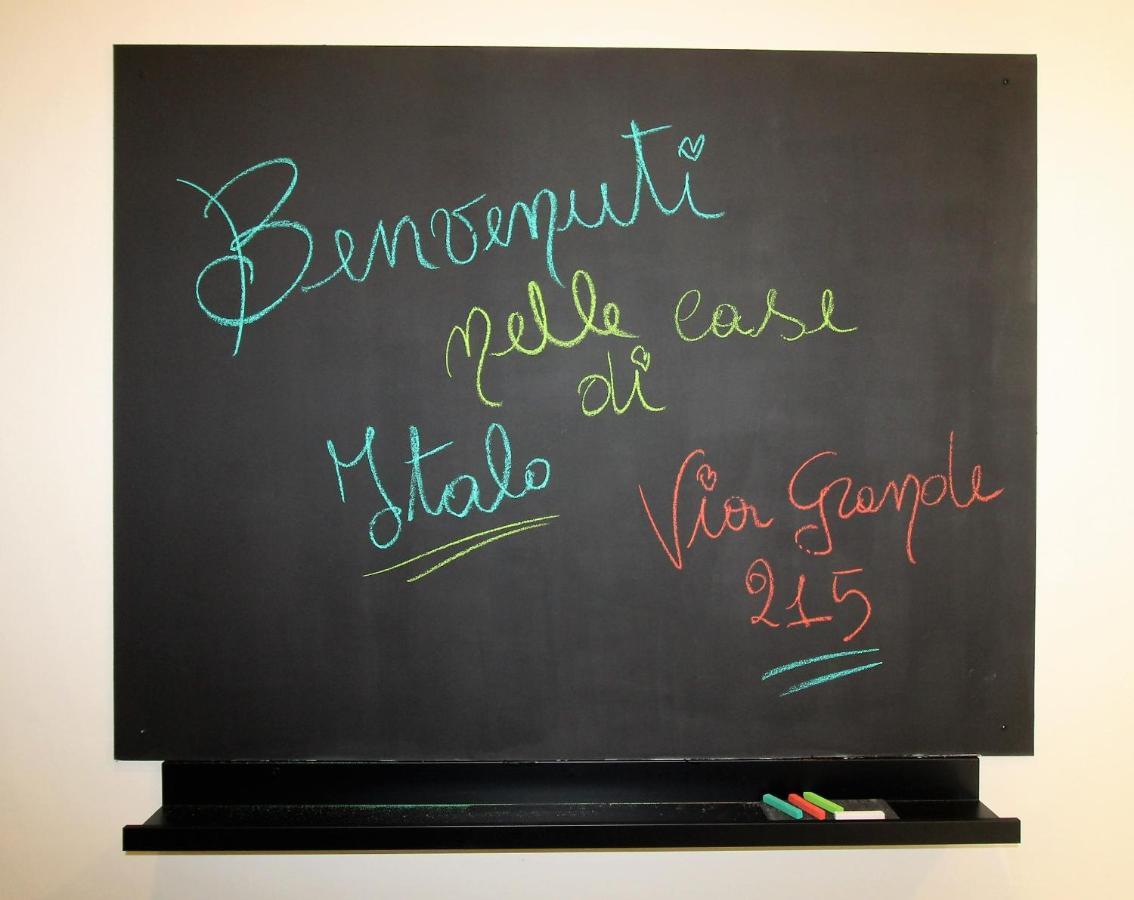 Benvenuti
nelle case
di
Italo
Via Grande
215